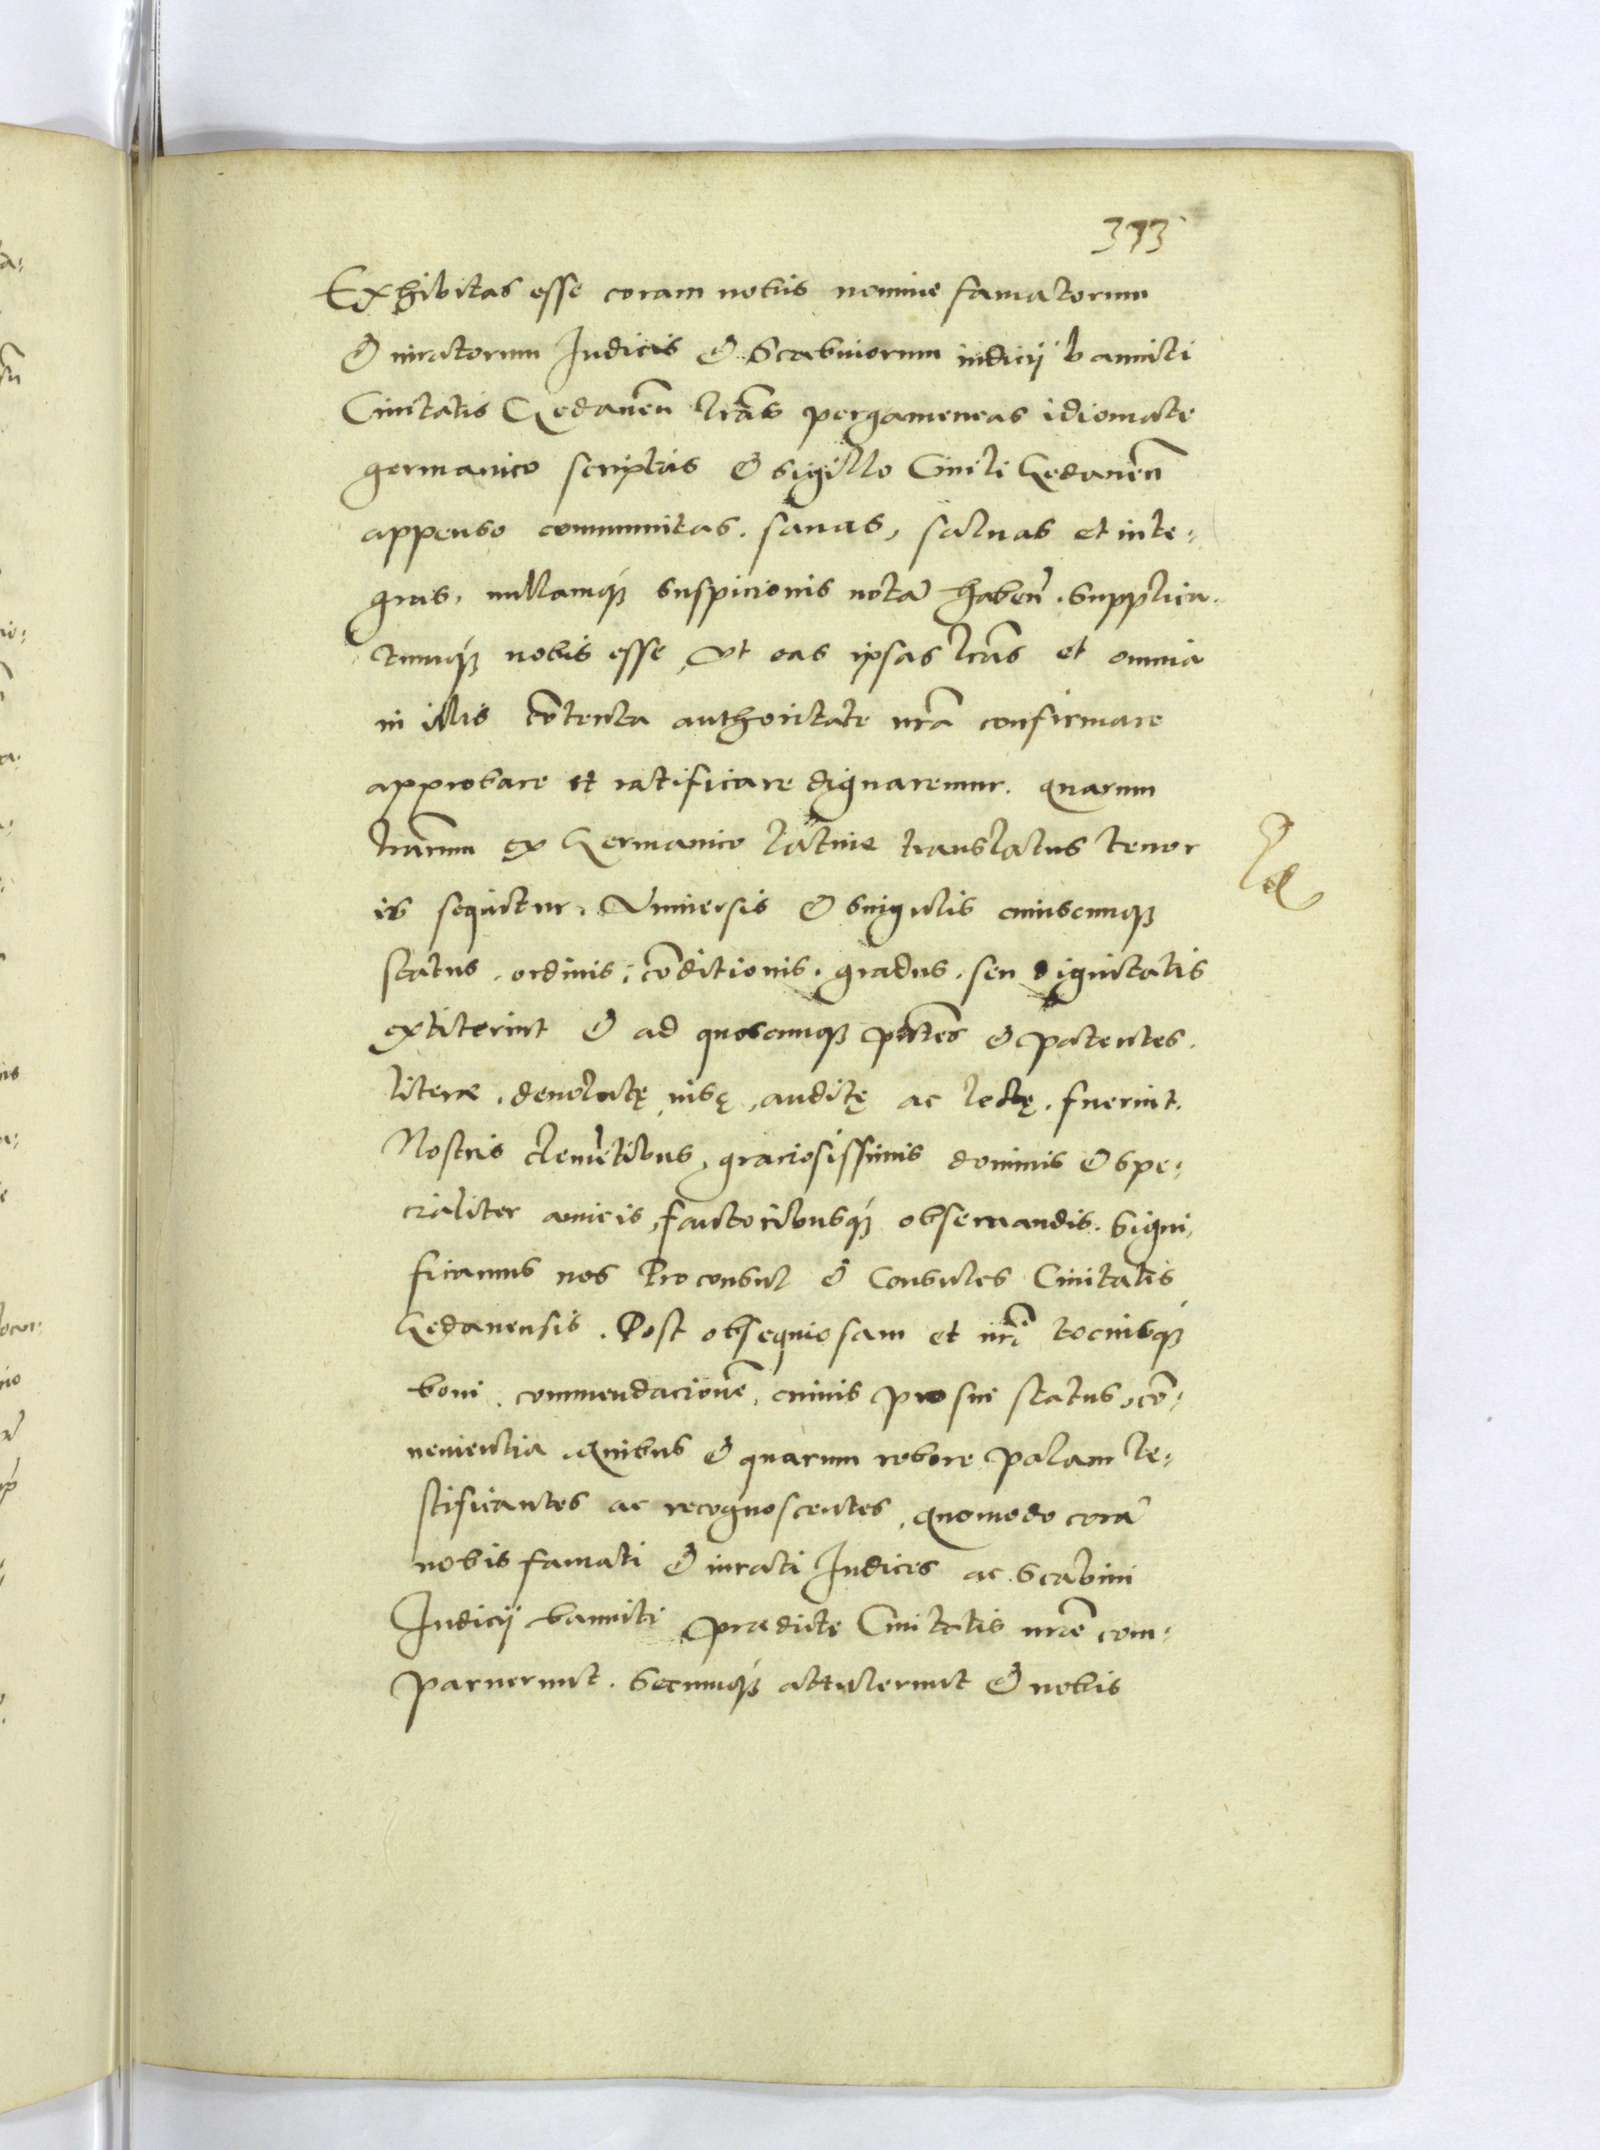 373
Exhibitas esse coram nobis nomine famatorum
& iuratorum Iudicis & Scabinorum iudicij banniti
Ciuitatis Gedaneñ lrãs pergameneas idiomate
germanico scriptas & sigillo Ciuili Gedaneñ
appenso communitas. sanas, saluas et inte:
gras, nullamq́ suspicionis notã habeñ. Supplica.
tumq́ nobis esse, vt eas ipsas lrãs et omnia
in illis cõtenta authoritate nrã confirmare
approbare et ratificare dignaremur. quarum
lrarum ex Germanico latine translatus tenor
is sequitur. Vniuersis & singulis cuiuscunq
status, ordinis, cõditionis, gradus, seu dignitatis
extiterint & ad quoscunq pñtes & patentes.
literæ, deuolutę, uisę, auditę ac lectę, fuerint.
Nostris clemẽtibus, graciosissimis dominis & spe:
cialiter amicis, fautoribusq́ obseruandis. Signi,
ficamus nos Proconsul & Consules Ciuitatis
Gedanensis. Post obsequiosam et nri tociusq́
boni commendacionẽ, cuiuis pro sui status, cõ:
uenientia. Quibus & quarum robore palam te:
stificantes ac recognoscentes, quomodo corã
nobis famati & iurati Iudices ac Scabini
Iudicij banniti prædicte Ciuitatis nrãe com:
paruerunt. Secumq́ attulerunt & nobis